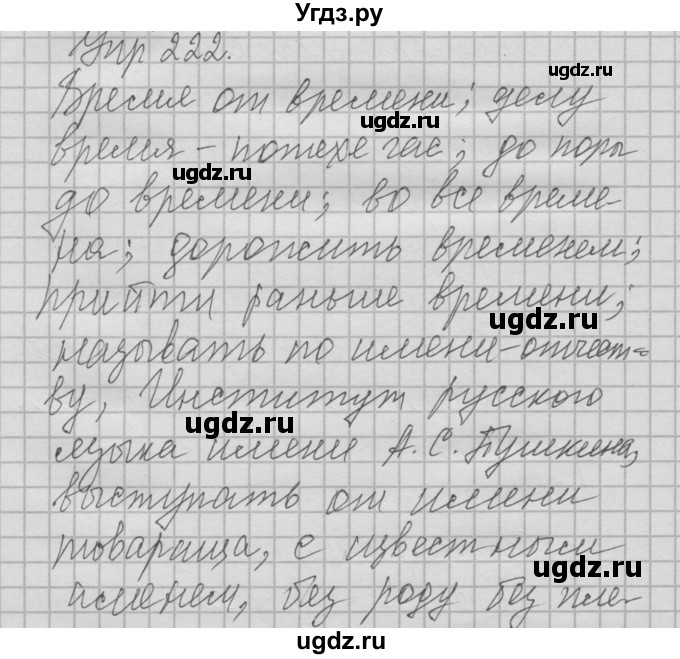 Угдз.ру
Упр 222.
ugdz.ru
Время от времени; делу
ugdz.ru
время - потехе час; до поры
ugdz.ru
до времени; во все време-
на; дорожить временем;
прийти раньше времени;
ugdz.ru
называть по имени-отчест-
ву, Институт русского
ugdz.ru
языка имени А.С.Пушкина,
выступать от имени
товарища, с известным
ugdz.ru
именем, без роду без пле-
ugdz.ru